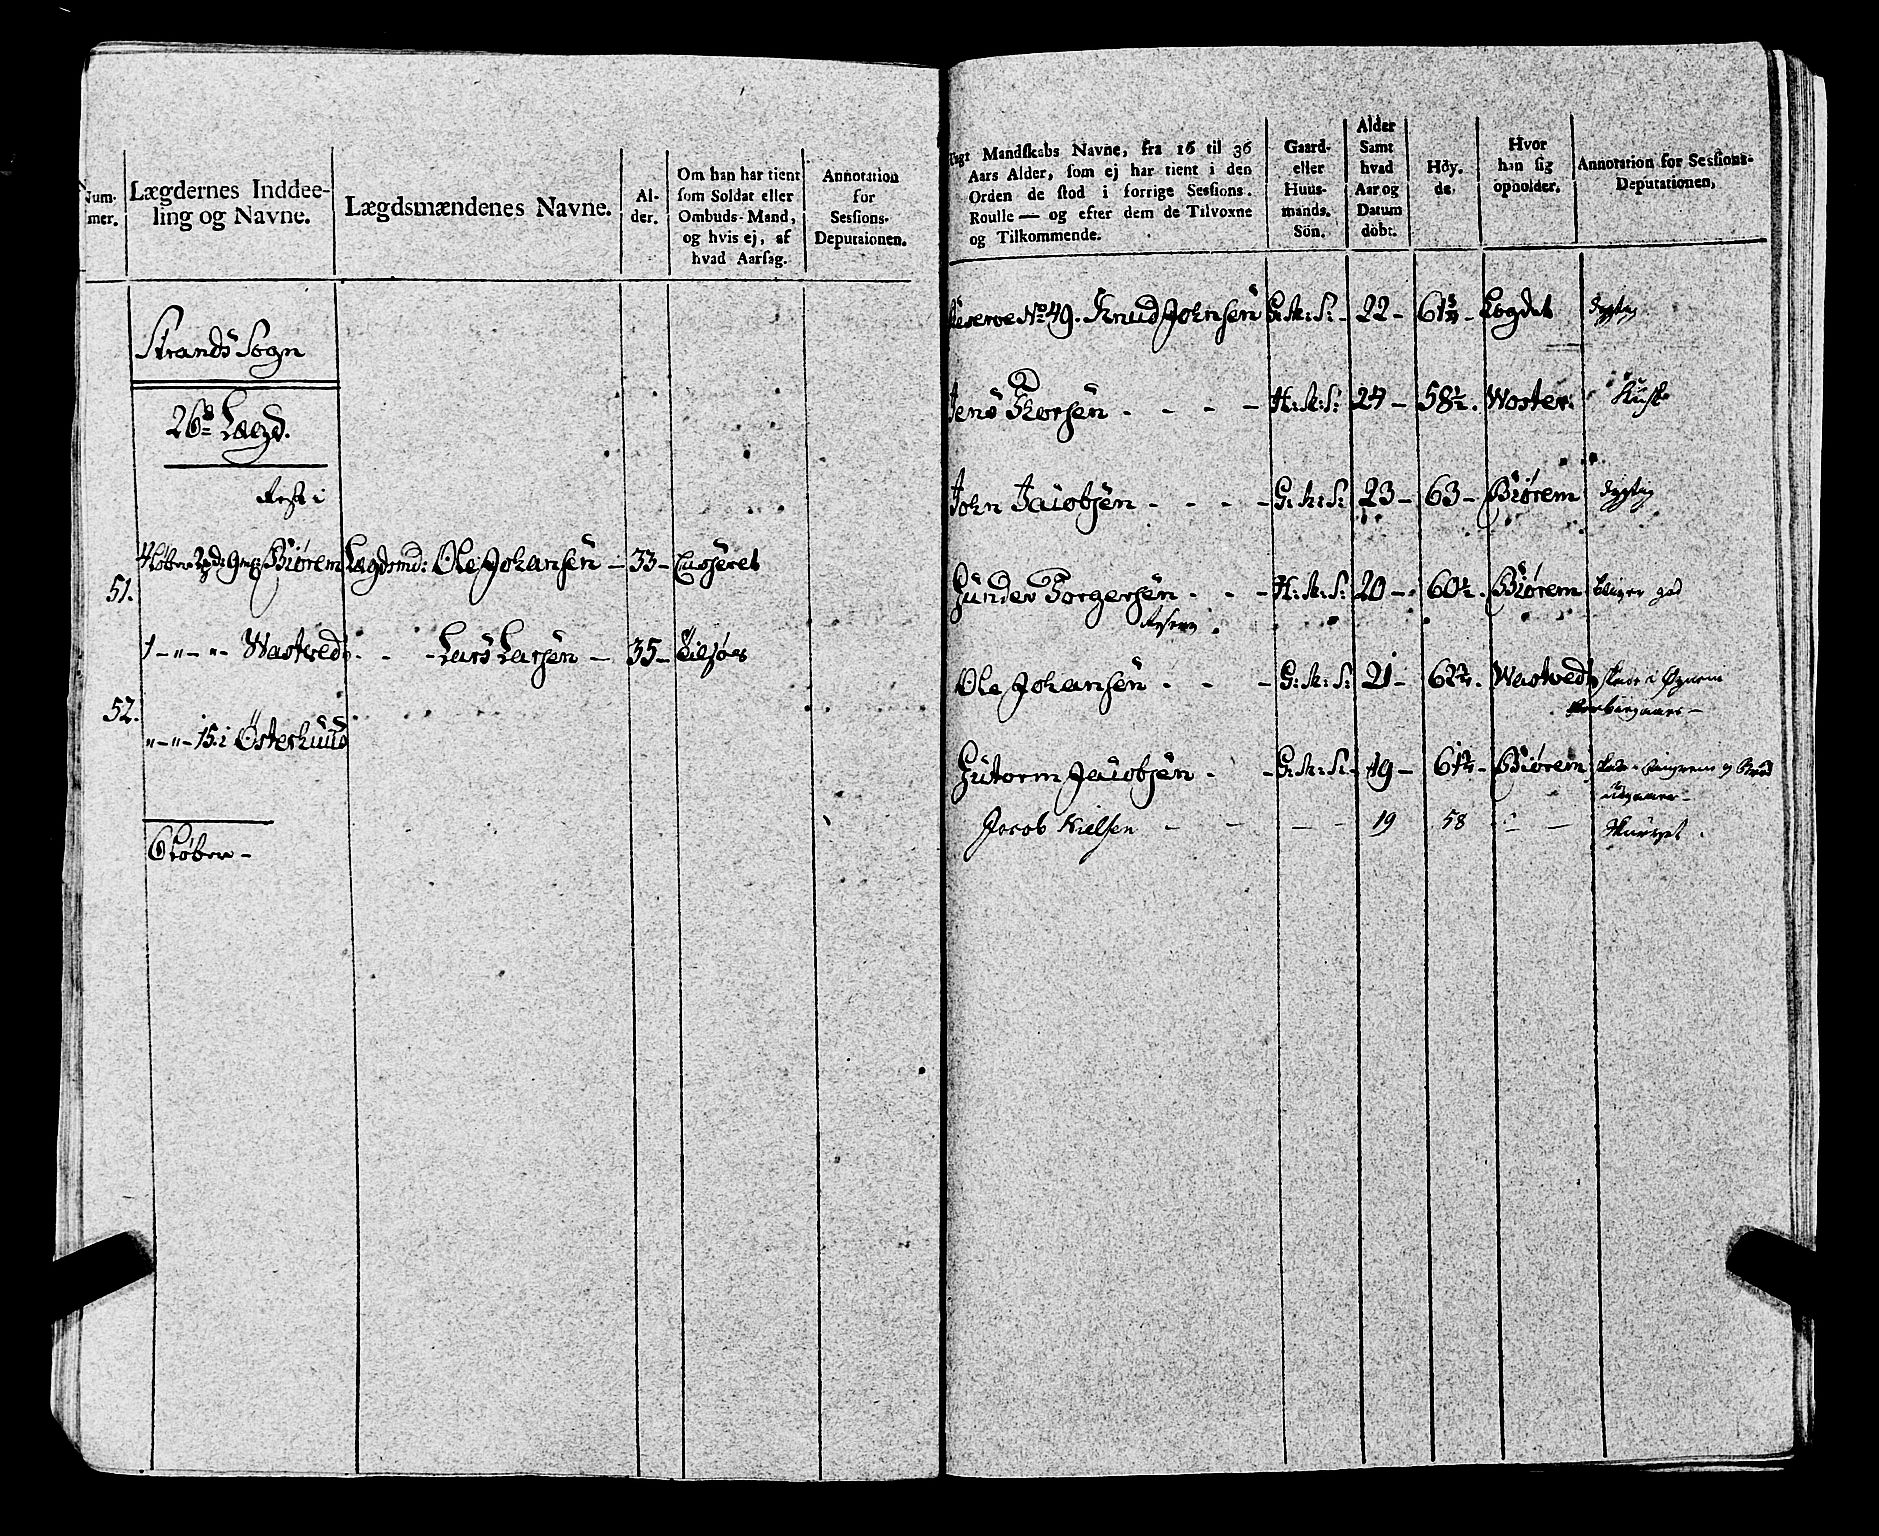 Num-
mer.
Lægdernes Inddee-
ling og Navne.
Lægdsmændenes Navne.
Al-
der.
Om han har tient
som Soldat eller
Ombuds-Mand,
og hvis ej, af
hvad Aarsag.
Annotation
for
Sessions-
Deputaionen.
Strands Sogn
26de Lægd.
51.
Biørem Lægdsmd: Ole Johansen – 33 – Casseret
1 – „ – „ – Wastved – – Lars Larsen – 35 –
52.
„ – „ – 15. i Østerhuus
6 Løber –
Ungt Mandskabs Navne, fra 16 til 36
Aars Alder, som ej har tient i den
Orden de stod i forrige Sessions-
Roulle — og efter dem de Tilvoxne
og Tilkommende.
Gaard-
eller
Huus-
mands-
Sön.
Alder
Samt
hvad
Aar og
Datum
döbt.
Höy-
de.
Hvor
han sig
opholder.
Annotation for Sessions-
Deputationen,
Reserve No 49. Knud Johnsen G: M: S: – 22 – 61 3/4 – Lægdet dygtig
Jens Thorsen – – – – H: M: S: 24 – 58 1/2 . Woster.
John Jacobsen – – – – G: M: S: 23 – 63 – Biørem dygtig
Gunder Torgersen – – – H: M: S: 20 – 60 1/2 . Biørem bliver god
Reserve
Ole Johansen – – – G: M: S: 21 – 62 3/4 . Wastved
Gutorm Jacobsen – – G: M: S: – 19 – 61 1/4 – Biørem
Jacob Nielsen – – – – 19 58 – –